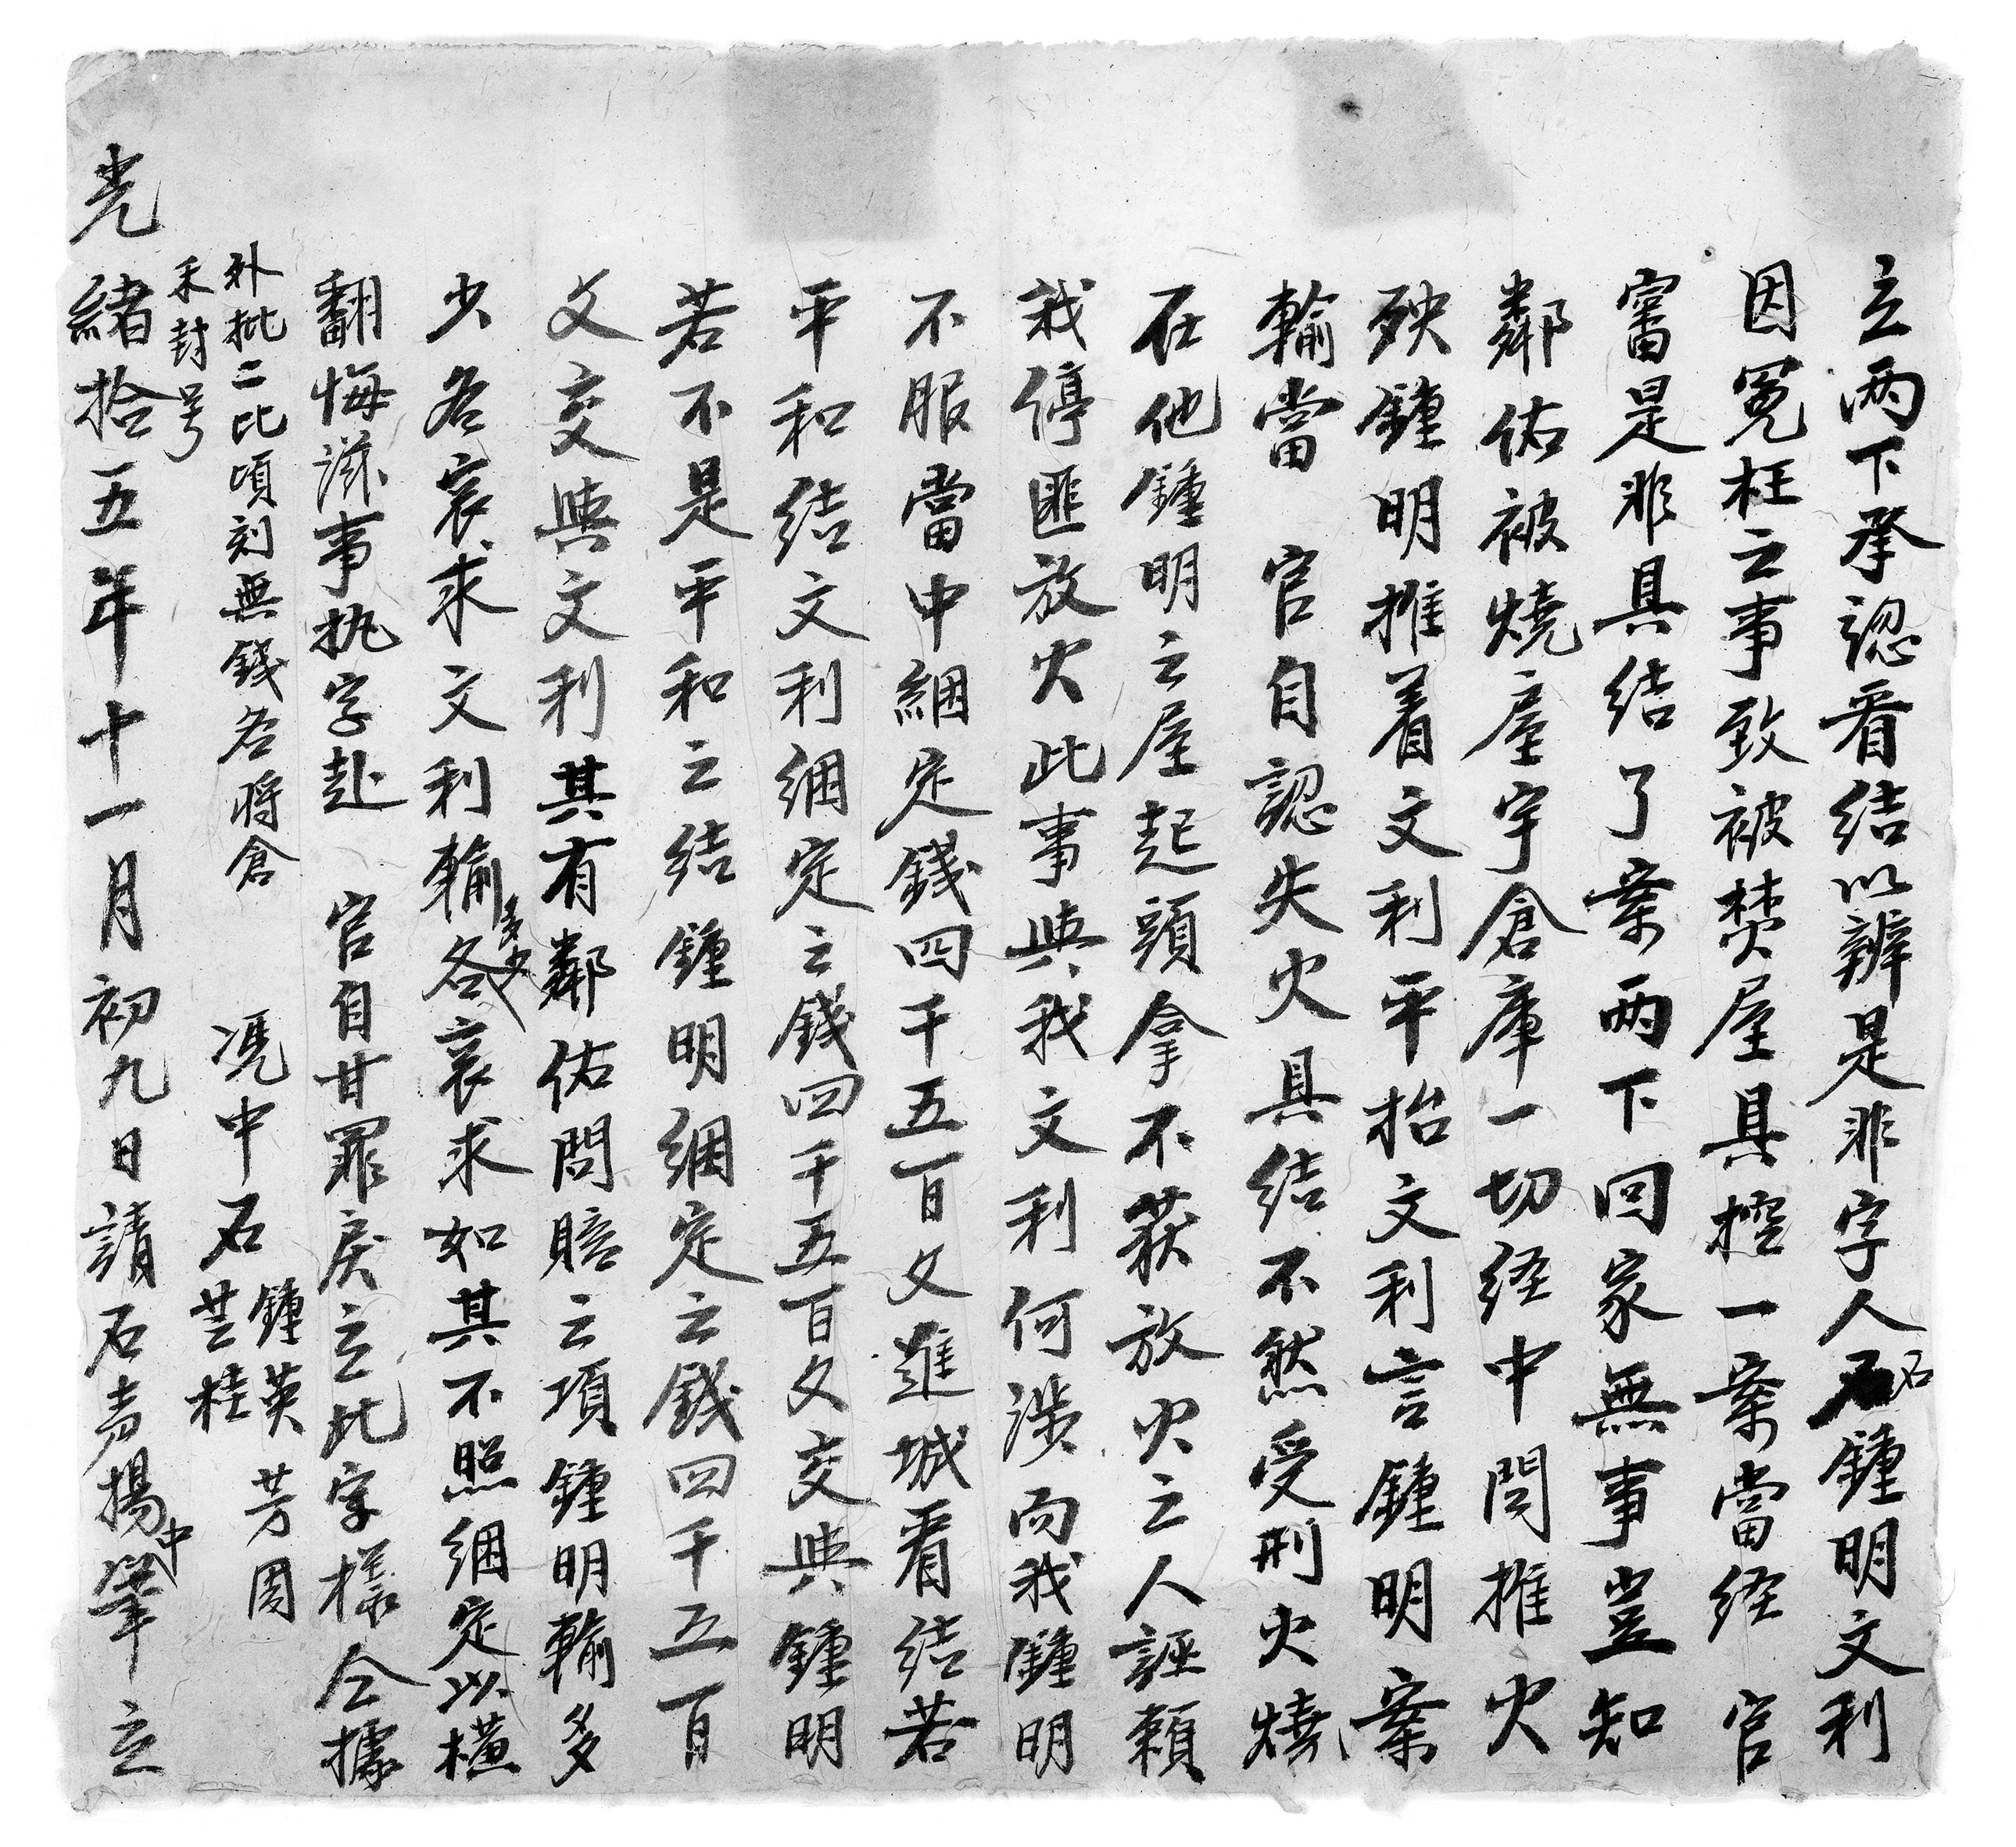 立兩下承認看結以辨是非字人石鍾明文利
因冤枉之事致被焚屋具控一案當経官
審是非具結了案兩下回家無事豈知
鄰佑被燒屋宇倉庫一切経中問推火
殃鍾明推着文利平抬文利言鍾明案
輸當官自認失火具結不然受刑火燒
在他鍾明之屋起頭拿不获放火之人誣賴
我停匪放火此事與我文利何涉而我鍾明
不服當中綑定錢四千五百文進城看結若
平和結文利綑定之錢四千五百文交與鍾明
若不是平和之結鍾明綑定之錢四千五百
文交與文利其有鄰佑問賠之項鍾明輸多
少各哀求文利輸多少各哀求如其不照綑定以橫
翻悔滋事执字赴官自甘罪戾立此字樣仝據
外批二比頃刻無錢各將倉
禾封号
憑中石鍾英 芳周
芸桂
光緒拾五年十一月初九日請石秀揚中筆立